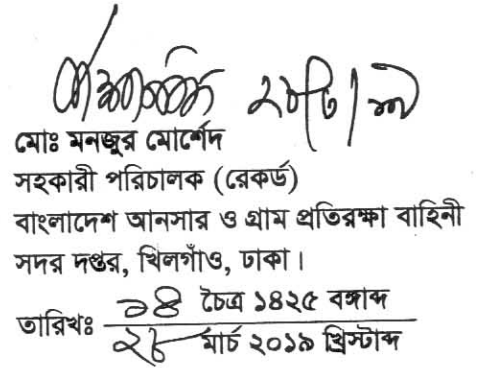 ২৮/৩/১৯
মোঃ মনজুর মোর্শেদ
সহকারী পরিচালক (রেকর্ড)
বাংলাদেশ আনসার ও গ্রাম প্রতিরক্ষা বাহিনী
সদর দপ্তর, খিলগাঁও, ঢাকা।
তারিখঃ ১৪ চৈত্র ১৪২৫ বঙ্গাব্দ
২৮ মার্চ ২০১৯ খ্রিস্টাব্দ